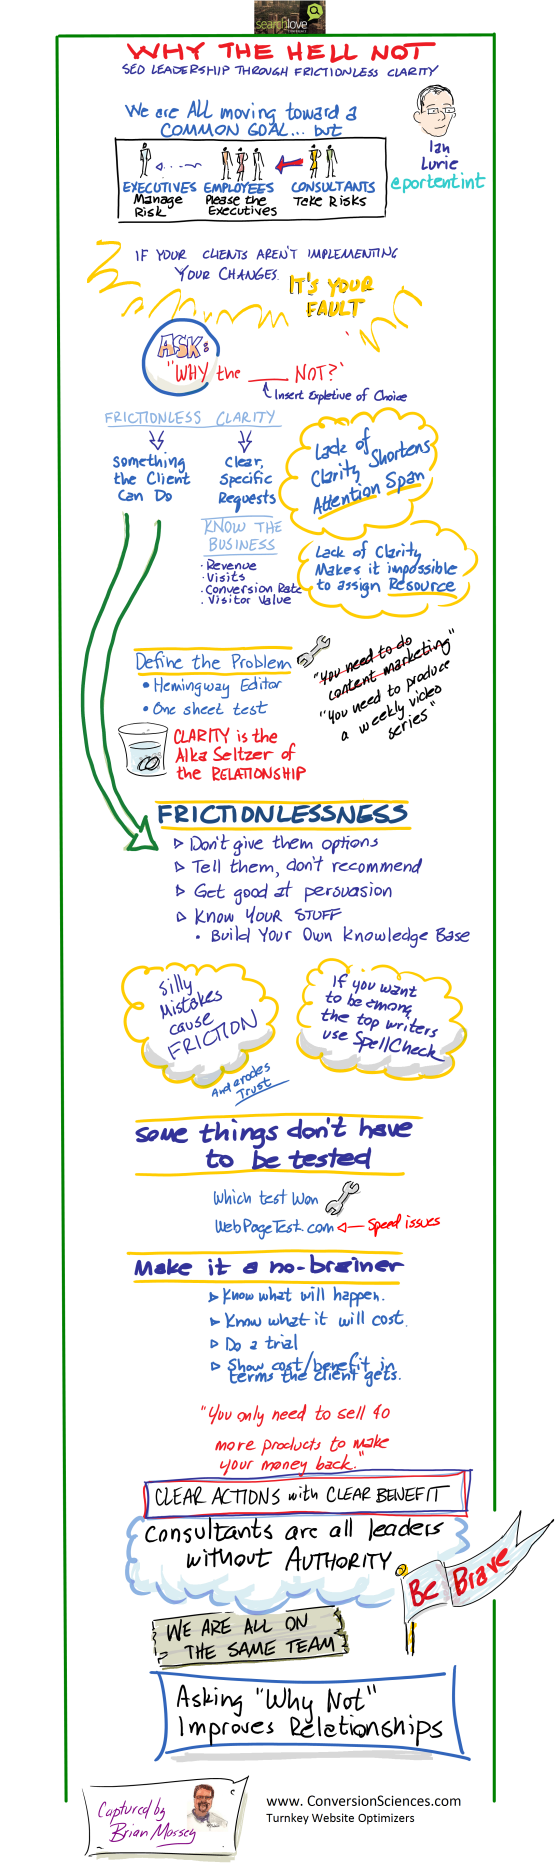 searchlove
CONFERENCE
WHY THE HELL NOT
SEO LEADERSHIP THROUGH FRICTIONLESS CLARITY
We are ALL moving toward a
COMMON GOAL... but
Ian
Lurie
@portentint
EXECUTIVES EMPLOYEES CONSULTANTS
Manage Please the Take Risks
Risk Executives
IF YOUR CLIENTS AREN'T IMPLEMENTING
YOUR CHANGES.
IT'S YOUR
FAULT
ASK:
"WHY the ____ NOT?"
Insert Expletive of Choice
FRICTIONLESS CLARITY
Something
the Client
Can Do
Clear,
Specific
Requests
Lack of
Clarity Shortens
Attention Span
KNOW THE
BUSINESS
· Revenue
· Visits
· Conversion Rate
· Visitor Value
Lack of Clarity
Makes it impossible
to assign Resource
Define the Problem
• Hemingway Editor
• One sheet test
"You need to do
content marketing"
"You need to produce
a weekly video
series"
CLARITY is the
Alka Seltzer of
the RELATIONSHIP
FRICTIONLESSNESS
▷ Don't give them options
▷ Tell them, don't recommend
▷ Get good at persuasion
▷ Know YOUR STUFF
• Build Your Own Knowledge Base
Silly
Mistakes
cause
FRICTION
And erodes
Trust
If you want
to be among
the top writers
use SpellCheck
Some things don't have
to be tested
Which test Won
WebPageTest.com
Speed issues
Make it a no-brainer
▷ Know what will happen.
▷ Know what it will cost.
▷ Do a trial
▷ Show cost/benefit in
terms the client gets.
"You only need to sell 40
more products to make
your money back."
CLEAR ACTIONS with CLEAR BENEFIT
Consultants are all leaders
without AUTHORITY
Be Brave
WE ARE ALL ON
THE SAME TEAM
Asking "Why Not"
Improves Relationships
Captured by
Brian Massey
www. ConversionSciences.com
Turnkey Website Optimizers